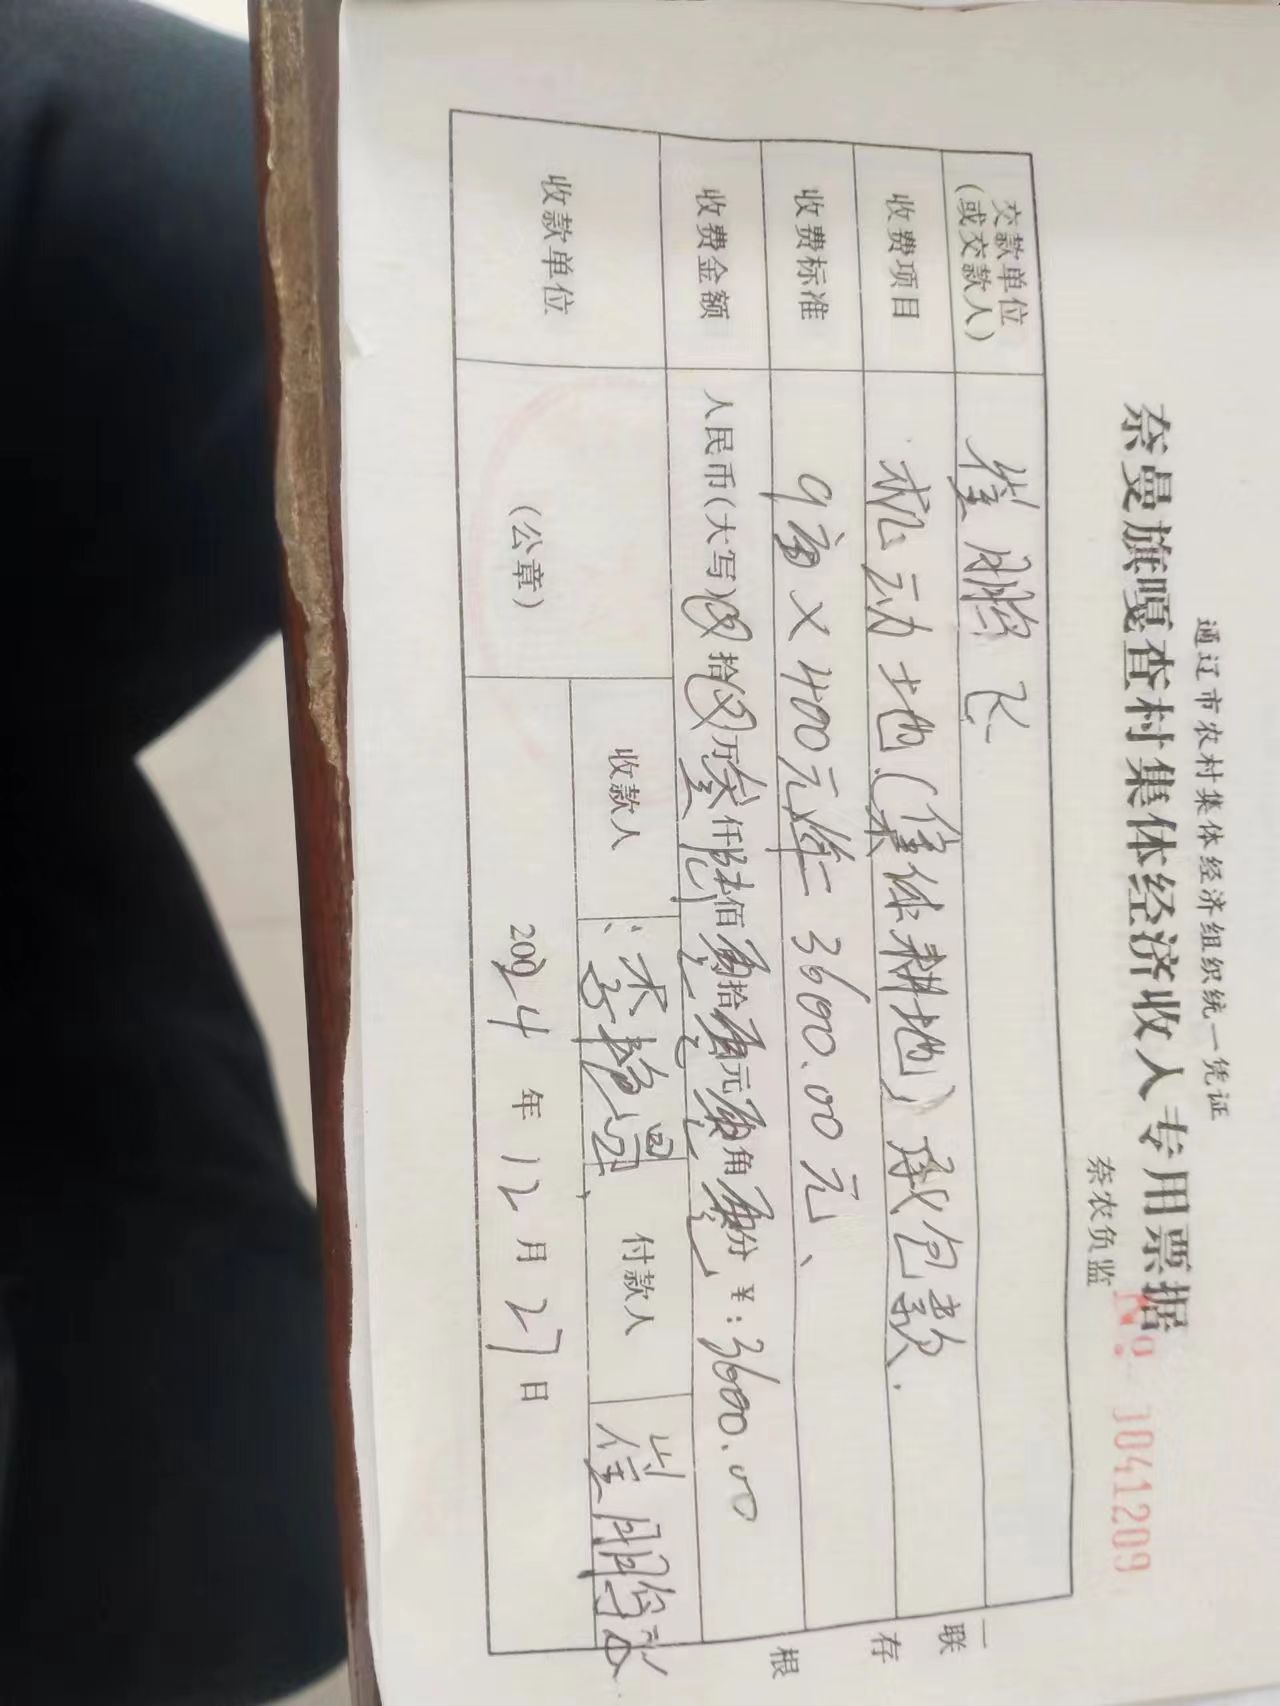 通辽市农村集体经济组织统一凭证
奈曼旗嘎查村集体经济收入专用票据
奈农负监
№ 1041209
交款单位
(或交款人)
崔鹏飞
收费项目
机动地(集体耕地)承包款.
收费标准
9亩×400元/年=3600.00元、
收费金额
人民币(大写)⊗拾⊗万叁仟陆佰零拾零元零角零分 ¥:3600.00
收款单位
(公章)
收款人
付款人
崔鹏飞
2024年12月27日
一联存根